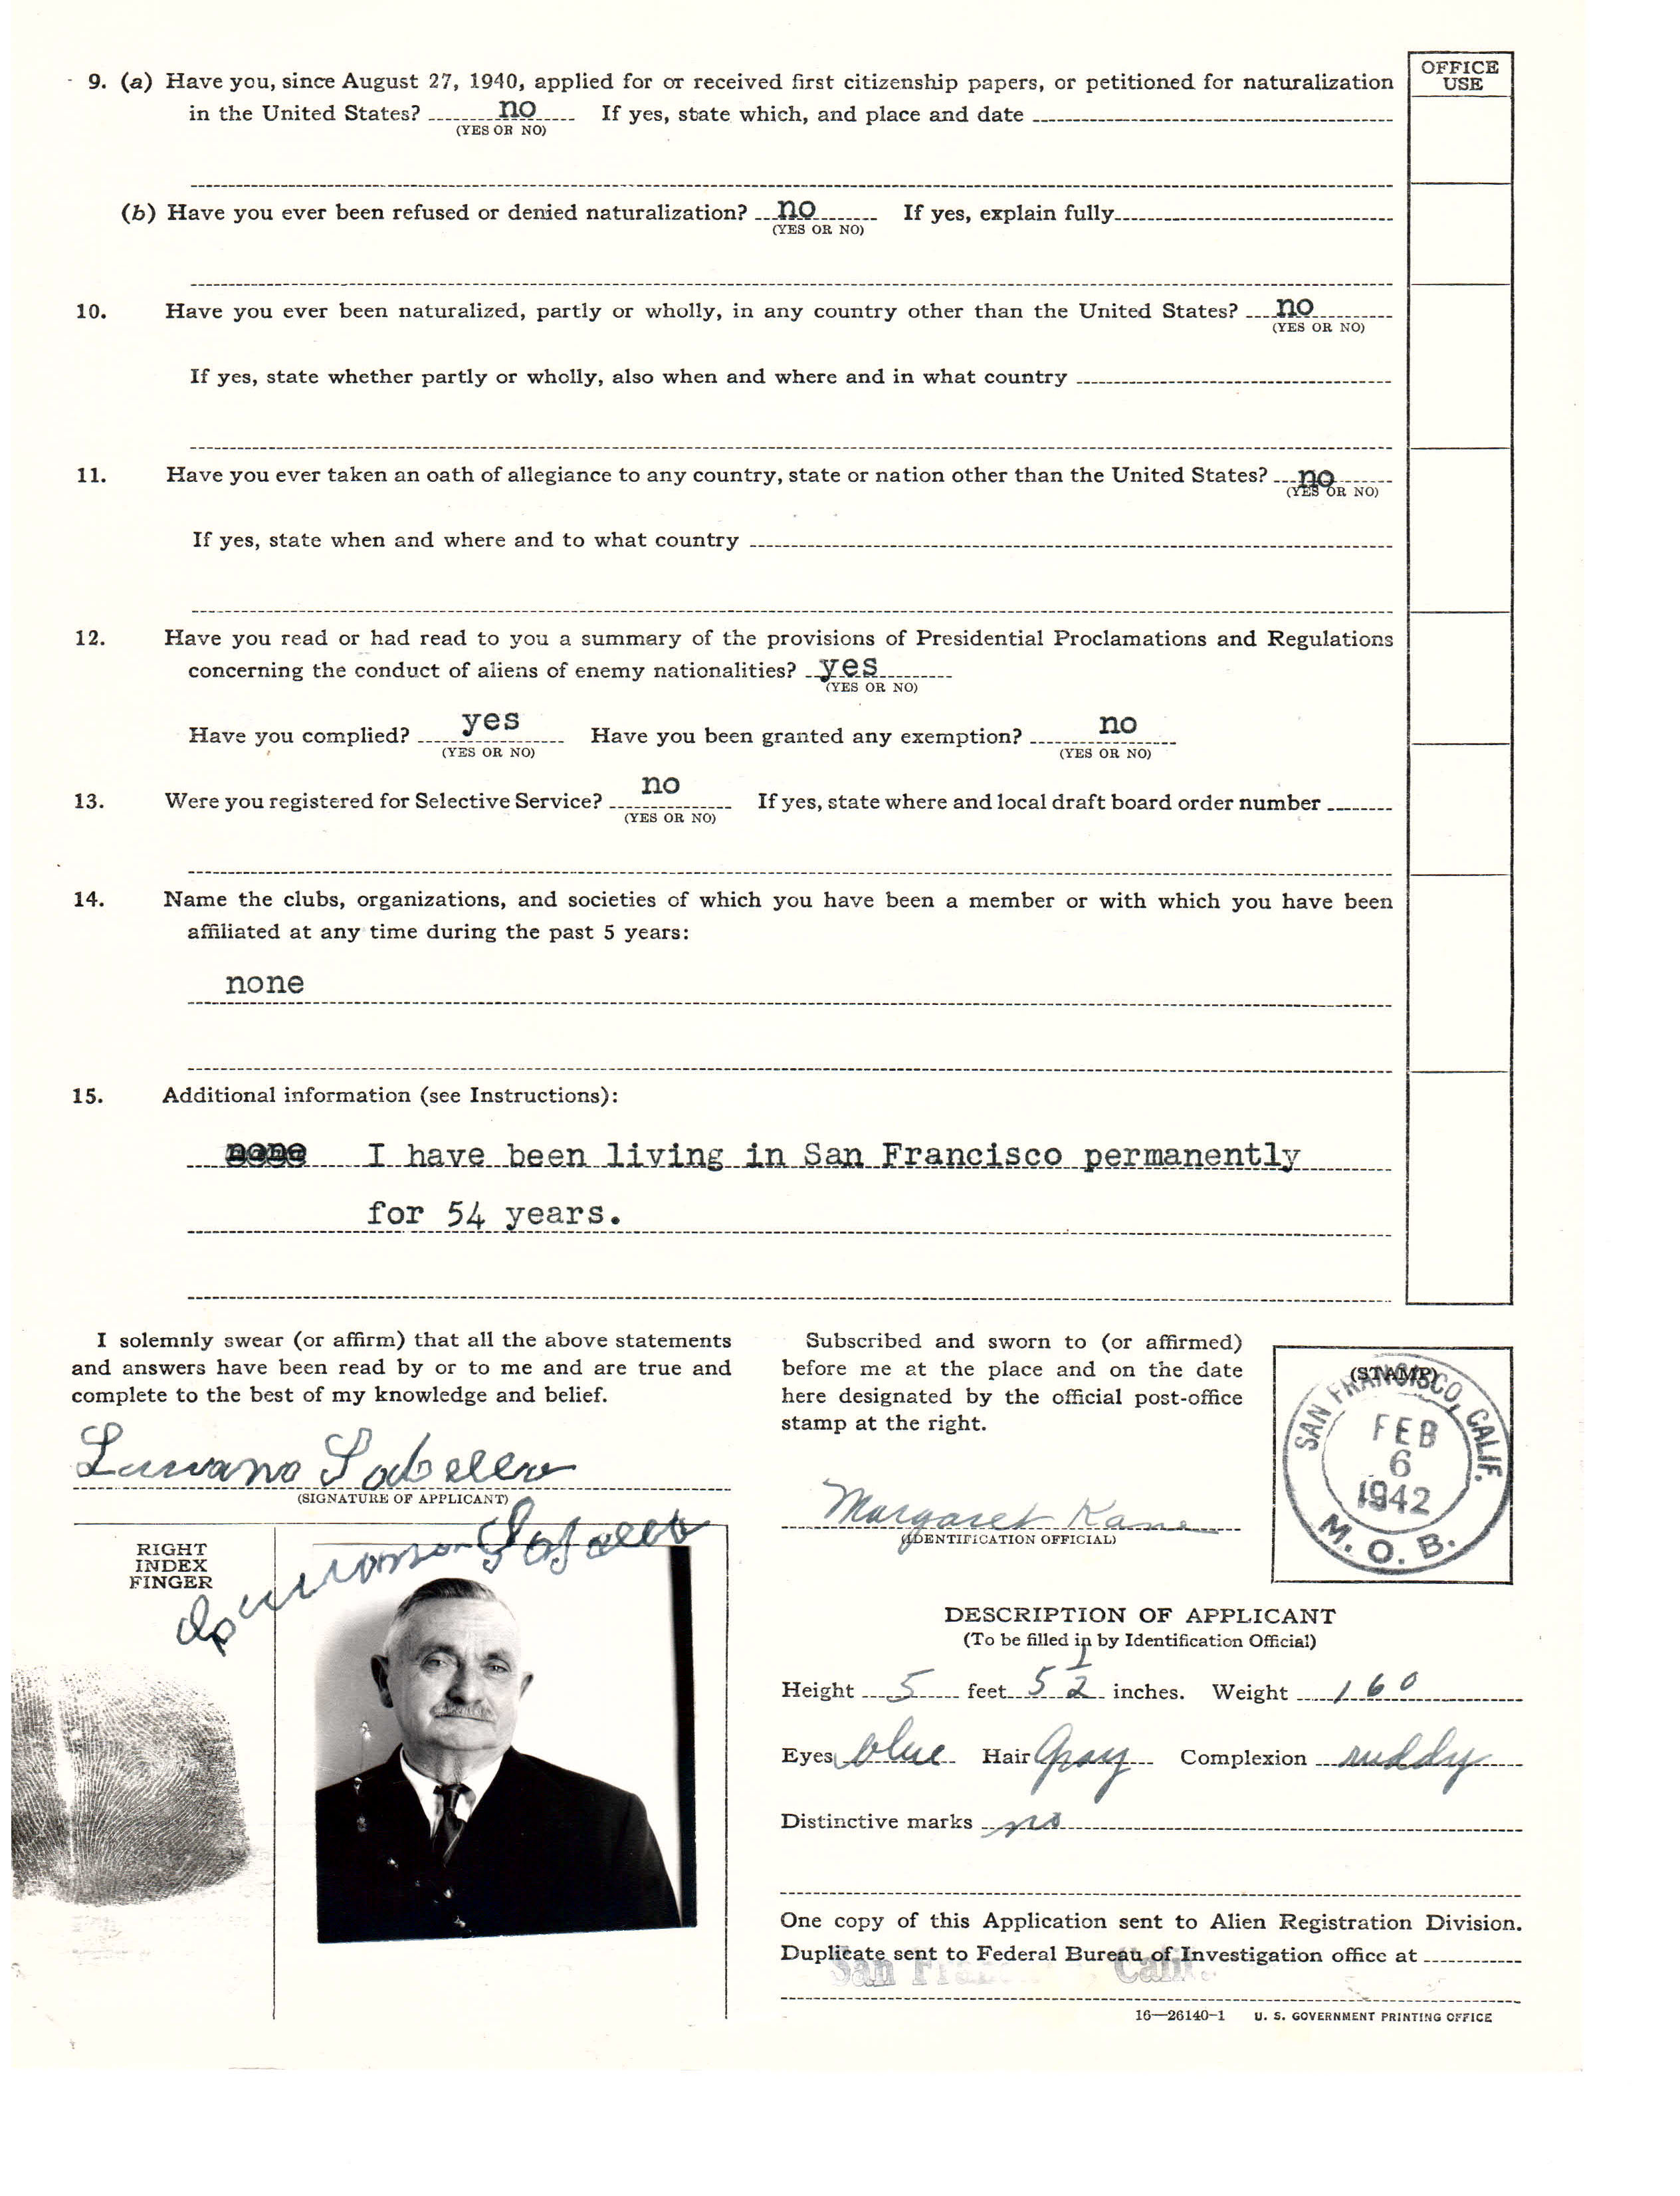 OFFICE
USE
9. (a) Have you, since August 27, 1940, applied for or received first citizenship papers, or petitioned for naturalization
in the United States? no If yes, state which, and place and date
(YES OR NO)
(b) Have you ever been refused or denied naturalization? no If yes, explain fully
(YES OR NO)
10. Have you ever been naturalized, partly or wholly, in any country other than the United States? no
(YES OR NO)
If yes, state whether partly or wholly, also when and where and in what country
11. Have you ever taken an oath of allegiance to any country, state or nation other than the United States? no
(YES OR NO)
If yes, state when and where and to what country
12. Have you read or had read to you a summary of the provisions of Presidential Proclamations and Regulations
concerning the conduct of aliens of enemy nationalities? yes
(YES OR NO)
Have you complied? yes Have you been granted any exemption? no
(YES OR NO) (YES OR NO)
13. Were you registered for Selective Service? no If yes, state where and local draft board order number
(YES OR NO)
14. Name the clubs, organizations, and societies of which you have been a member or with which you have been
affiliated at any time during the past 5 years:
none
15. Additional information (see Instructions):
none I have been living in San Francisco permanently
for 54 years.
I solemnly swear (or affirm) that all the above statements
and answers have been read by or to me and are true and
complete to the best of my knowledge and belief.
(SIGNATURE OF APPLICANT)
RIGHT
INDEX
FINGER
Subscribed and sworn to (or affirmed)
before me at the place and on the date
here designated by the official post-office
stamp at the right.
Margaret Kane
(IDENTIFICATION OFFICIAL)
(STAMP)
SAN FRANCISCO, CALIF.
FEB
6
1942
M. O. B.
DESCRIPTION OF APPLICANT
(To be filled in by Identification Official)
Height 5 feet 5 1/2 inches. Weight 160
Eyes blue Hair Gray Complexion ruddy
Distinctive marks no
One copy of this Application sent to Alien Registration Division.
Duplicate sent to Federal Bureau of Investigation office at
San Calif.
16—26140-1 U. S. GOVERNMENT PRINTING OFFICE